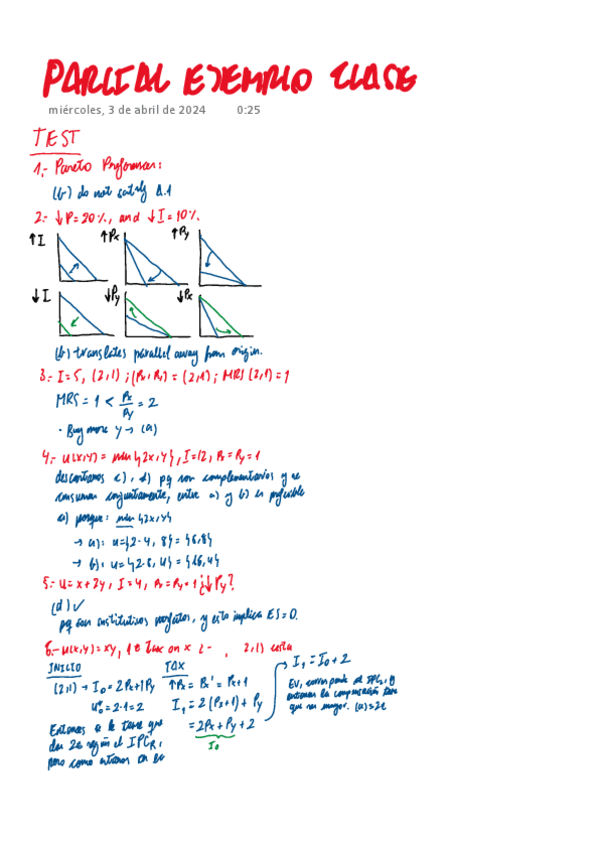 PARCIAL EJEMPLO CLASE
miércoles, 3 de abril de 2024 0:25
TEST
1.- Pareto Preferences:
(b) do not satisfy A.1
2.- ↓P=20%, and ↓I=10%.
↑I ↑Px ↑Py
↓I ↓Py ↓Px
(b) translates parallel away from origin.
3.- I=5, (2,1); (Px,Py) = (2,1); MRS(2,1)=1
MRS = 1 < Px/Py = 2
· Buy more y → (a)
4.- u(x,y) = min{2x,y}, I=12, Px=Py=1
descartamos c), d) pq son complementarios y se
consumen conjuntamente, entre a) y b) es preferible
a) porque: min{2x,y}
→ a): u={2·4, 8} = {8,8}
→ b): u={2·8, 4} = {16,4}
5.- U=x+2y, I=4, Px=Py=1 ¿↓Py?
(d) ✓
pq son sustitutivos perfectos, y esto implica ES=0.
6.- u(x,y)=xy, 1€ tax on x (2,1)
INICIO TAX
(2,1) → I₀=2Px+1Py
u₀=2·1=2
↑Px = Px' = Px+1
I₁ = 2(Px+1) + Py
= 2Px+Py+2
I₀
→ I₁ = I₀+2
Entonces se le tiene que
dar 2€ según el IPC,
pero como estamos en
EV, corresponde al
la compensación tiene
que ser mayor. (a)=2€